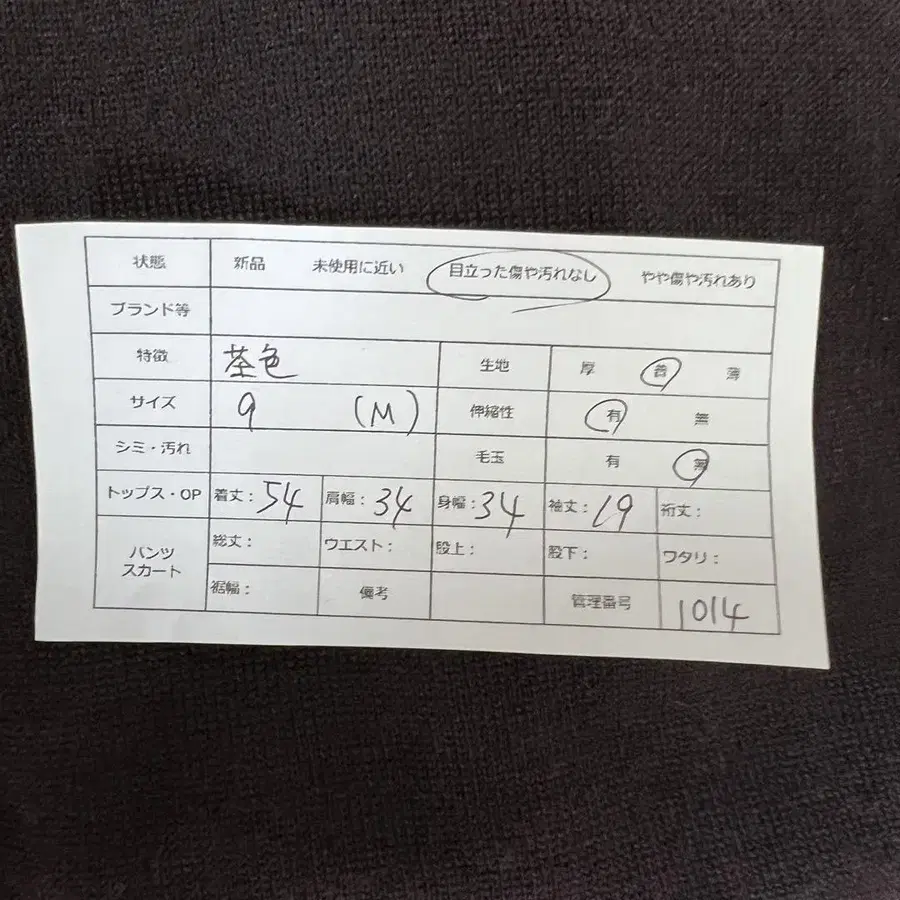 状態 新品 未使用に近い 目立った傷や汚れなし やや傷や汚れあり
ブランド等
特徴 茶色 生地 厚 普 薄
サイズ 9 (M) 伸縮性 有 無
シミ・汚れ 毛玉 有 無
トップス・OP 着丈: 54 肩幅: 34 身幅: 34 袖丈: 19 裄丈:
パンツ スカート 総丈: ウエスト: 股上: 股下: ワタリ:
裾幅: 備考 管理番号 1014